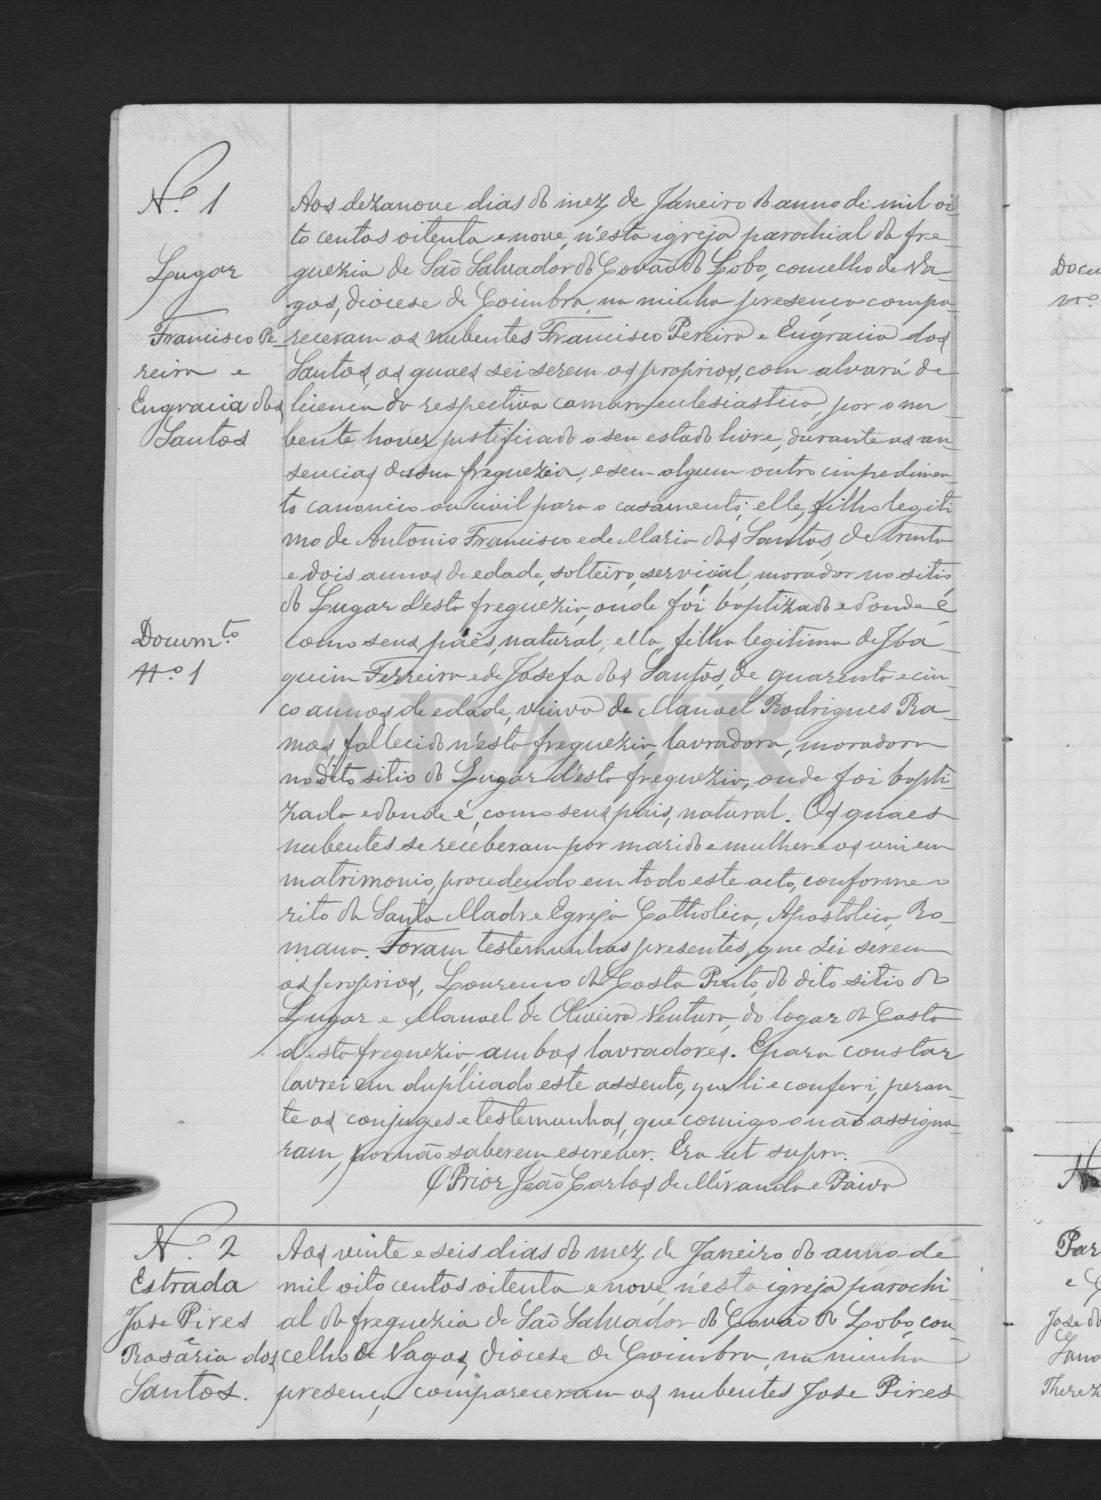 N.º 1
Lugar
Francisco Pe-
reira e
Engracia dos
Santos
Docum.to
N.º 1
Aos dezanove dias do mez de Janeiro do anno de mil oi-
to centos oitenta e nove, n'esta igreja parochial da fre-
guezia de São Salvador do Covão do Lobo, concelho de Va-
gos, diocese de Coimbra, na minha presença compa-
receram os nubentes Francisco Pereira e Engracia dos
Santos, os quaes sei serem os proprios, com alvará de
licença da respectiva camara ecclesiastica, por o nu-
bente haver justificado o seu estado livre, durante as au-
sencias da sua freguezia, e sem algum outro impedimen-
to canonico ou civil para o casamento; elle, filho legiti-
mo de Antonio Francisco e de Maria dos Santos, de trinta
e dois annos de edade, solteiro, serviçal, morador no sitio
do Lugar d'esta freguezia, onde foi baptizado e donde é
como seus paes, natural; ella, filha legitima de Joa-
quim Ferreira e de Josefa dos Santos, de quarenta e cin-
co annos de edade, viuva de Manoel Rodrigues Ra-
mos, fallecido n'esta freguezia, lavradora, moradora
no dito sitio do Lugar d'esta freguezia, onde foi bapti-
zada e donde é, como seus pais, natural. Os quaes
nubentes se receberam por marido e mulher e os uni em
matrimonio, procedendo em todo este acto, conforme o
rito da Santa Madre Egreja Catholica, Apostolica, Ro-
mana. Foram testemunhas presentes, que sei serem
os proprios, Lourenço da Costa Pinto, do dito sitio do
Lugar e Manoel de Oliveira Ventura, do logar da Gasta
d'esta freguezia ambos lavradores. E para constar
lavrei em duplicado este assento, que li e conferi, peran-
te os conjuges e testemunhas, que comigo o não assigna-
ram, por não saberem escrever. Era ut supra.
O Prior João Carlos de Miranda e Paiva
N.º 2
Estrada
Jose Pires
e
Rosaria dos
Santos.
Aos vinte e seis dias do mez de Janeiro do anno de
mil oito centos oitenta e nove, n'esta igreja parochi-
al da freguezia de São Salvador do Covão do Lobo, con-
celho de Vagos, diocese de Coimbra, na minha
presença compareceram os nubentes Jose Pires
Docu
N.º
Par
e
Jose do
Sano
Therez
ADAVR